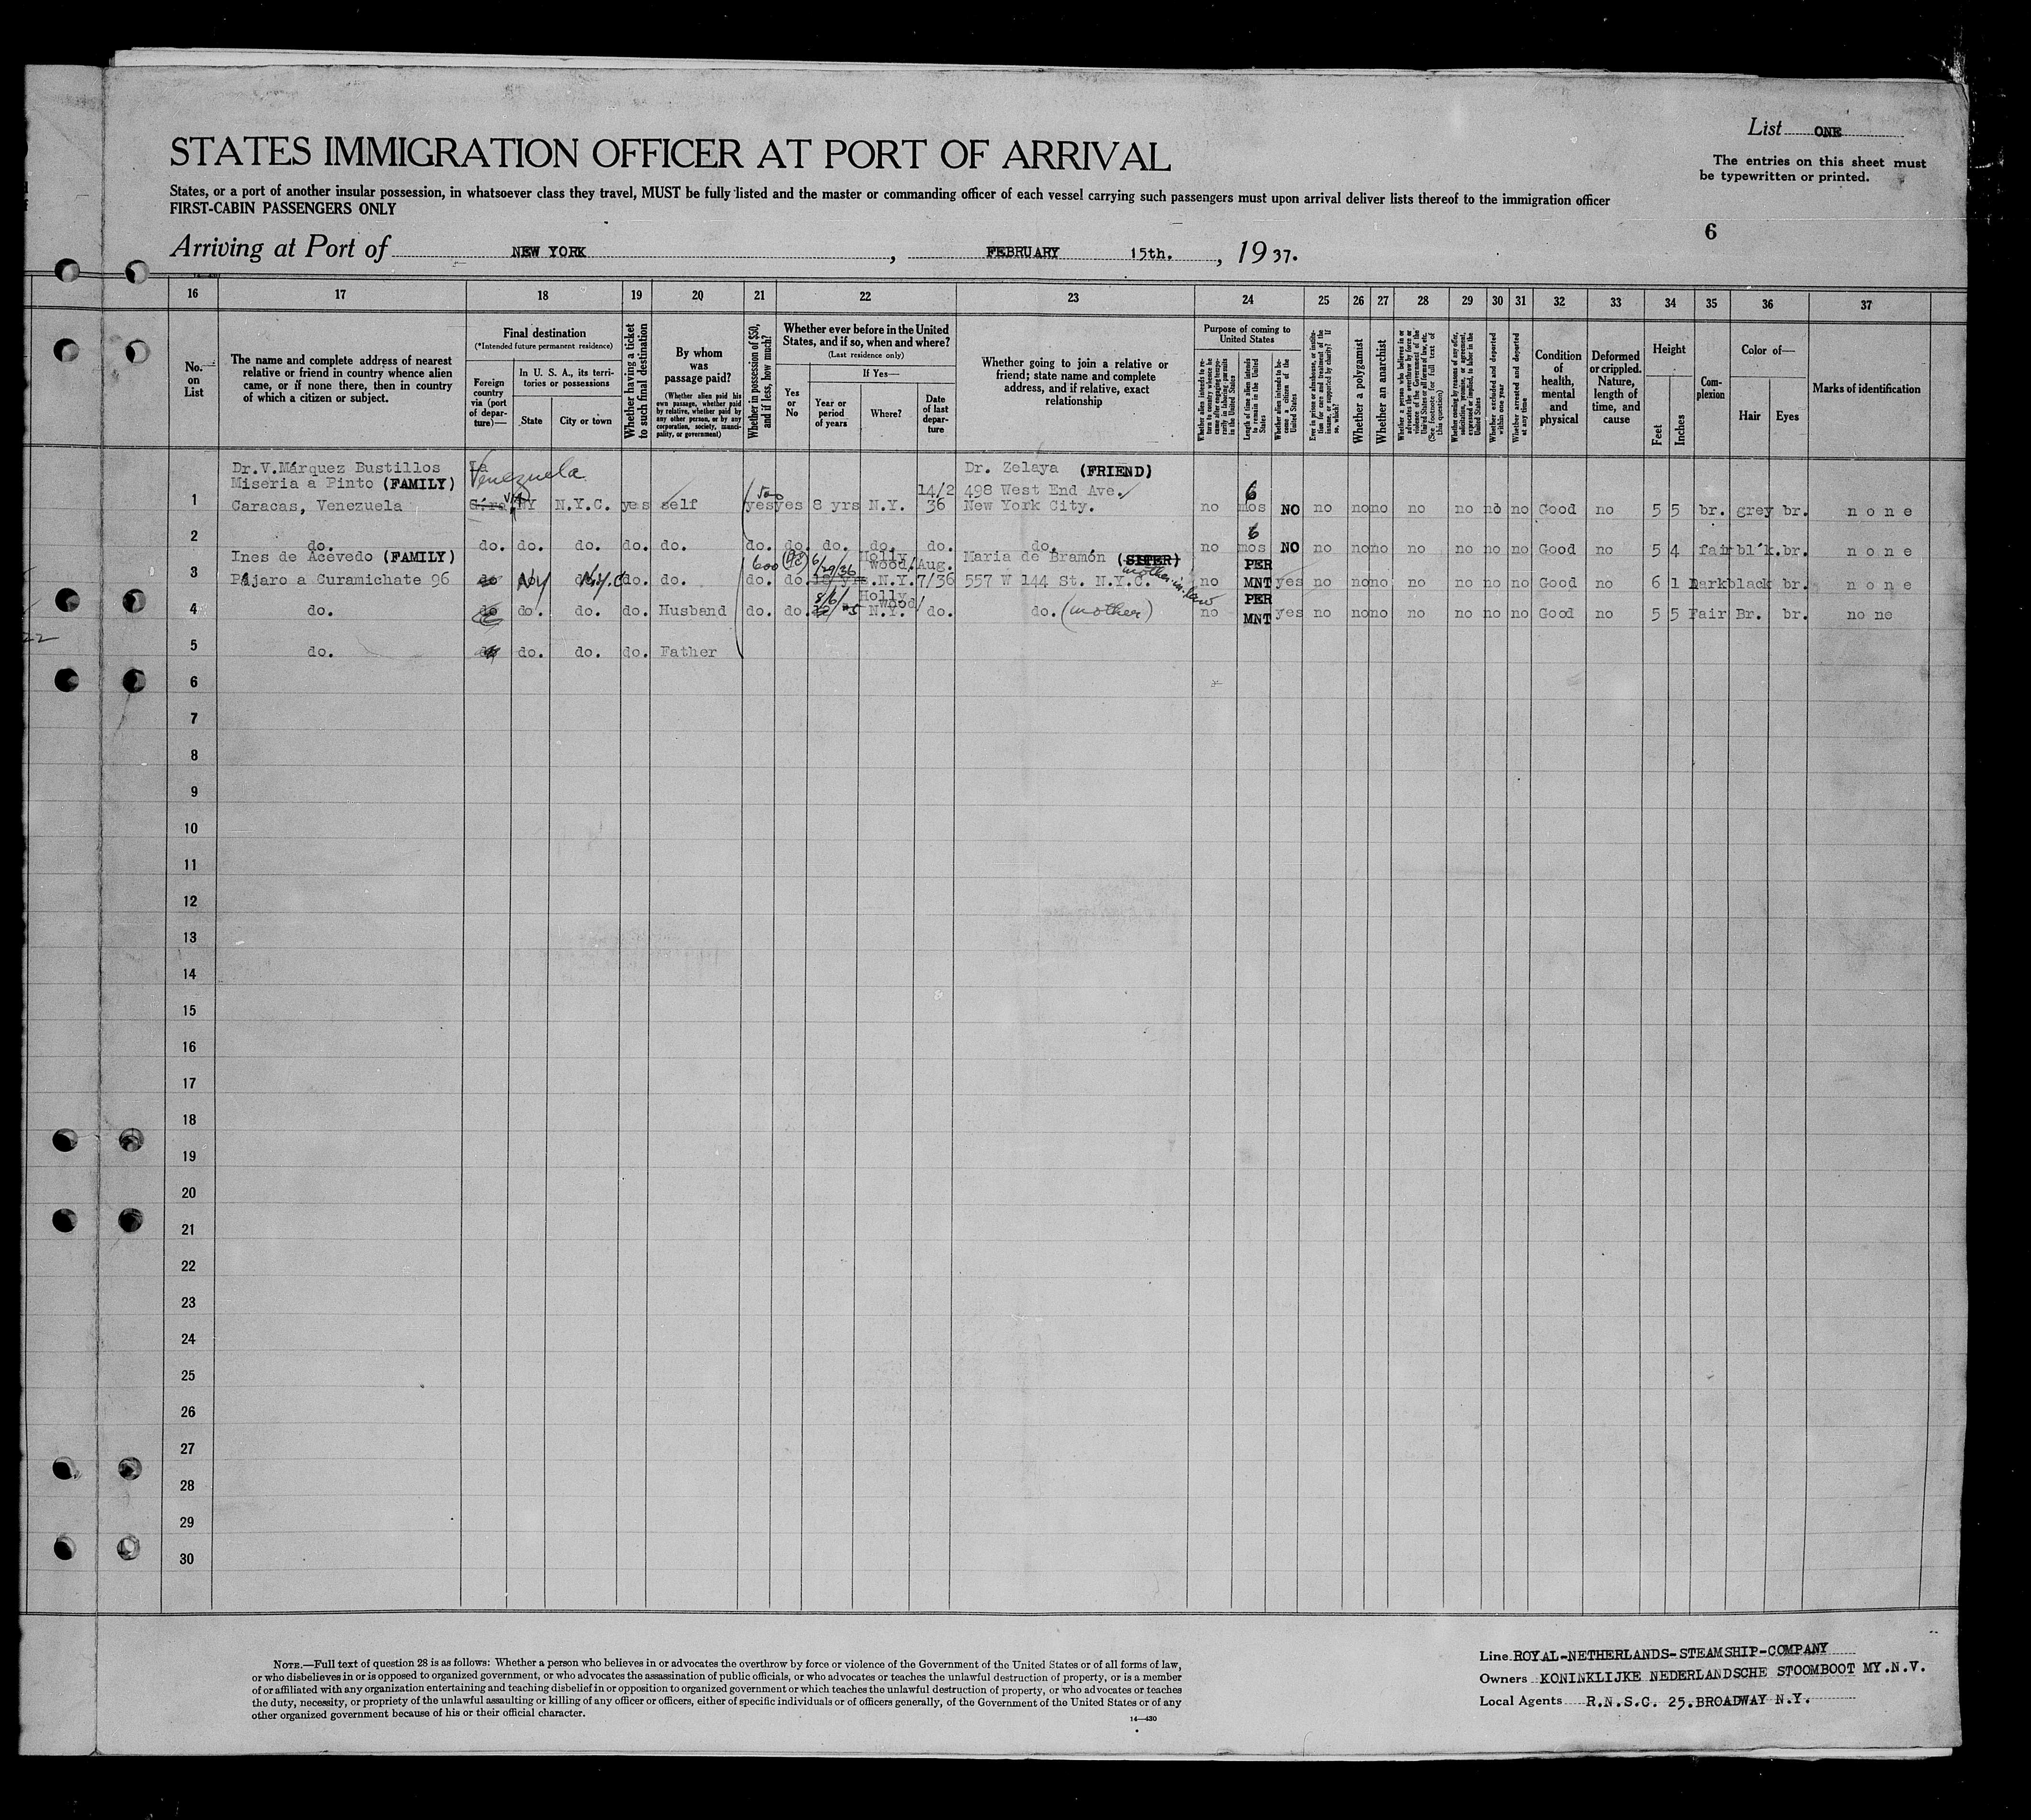 List ONE
STATES IMMIGRATION OFFICER AT PORT OF ARRIVAL
The entries on this sheet must
be typewritten or printed.
States, or a port of another insular possession, in whatsoever class they travel, MUST be fully listed and the master or commanding officer of each vessel carrying such passengers must upon arrival deliver lists thereof to the immigration officer
FIRST-CABIN PASSENGERS ONLY
6
Arriving at Port of NEW YORK, FEBRUARY 15th., 1937.
16 17 18 19 20 21 22 23 24 25 26 27 28 29 30 31 32 33 34 35 36 37
No. on List
The name and complete address of nearest relative or friend in country whence alien came, or if none there, then in country of which a citizen or subject.
Final destination
(*Intended future permanent residence)
Foreign country via (port of departure)—
In U. S. A., its territories or possessions
State
City or town
Whether having a ticket to such final destination
By whom was passage paid?
(Whether alien paid his own passage, whether paid by relative, whether paid by any other person, or by any corporation, society, municipality, or government)
Whether in possession of $50, and if less, how much?
Whether ever before in the United States, and if so, when and where?
(Last residence only)
Yes or No
If Yes—
Year or period of years
Where?
Date of last departure
Whether going to join a relative or friend; state name and complete address, and if relative, exact relationship
Purpose of coming to United States
Whether alien intends to return to country whence he came after engaging temporarily in laboring pursuits in the United States
Length of time alien intends to remain in the United States
Whether alien intends to become a citizen of the United States
Ever in prison or almshouse, or institution for care and treatment of the insane, or supported by charity? If so, which?
Whether a polygamist
Whether an anarchist
Whether a person who believes in or advocates the overthrow by force or violence of the Government of the United States or all forms of law, etc. (See footnote for full text of this question)
Whether coming by reasons of any offer, solicitation, promise, or agreement, expressed or implied, to labor in the United States
Whether excluded and deported within one year
Whether arrested and deported at any time
Condition of health, mental and physical
Deformed or crippled. Nature, length of time, and cause
Height
Feet
Inches
Complexion
Color of—
Hair
Eyes
Marks of identification
Dr.V.Márquez Bustillos La Venezuela Dr. Zelaya (FRIEND)
Miseria a Pinto (FAMILY) 500 14/2 498 West End Ave. 6
1 Caracas, Venezuela via NY N.Y.C. yes self yes yes 8 yrs N.Y. 36 New York City. no mos NO no no no no no no no Good no 5 5 br. grey br. none
6
2 do. do. do. do. do. do. do. do. do. do. do. do. no mos NO no no no no no no no Good no 5 4 fair bl'k. br. none
Ines de Acevedo (FAMILY) 600 6/29/36 Holly wood/ Aug. Maria de Bramón (SISTER) mother-in-law PER
3 Pájaro a Curamichate 96 do NY N.Y.C do. do. do. do. N.Y. 7/36 557 W 144 St. N.Y.C. no MNT yes no no no no no no no Good no 6 1 Dark black br. none
8/6/ Holly wood/ PER
4 do. do. do. do. Husband do. do. N.Y. do. do. (mother) no MNT yes no no no no no no no Good no 5 5 Fair Br. br. none
5 do. do. do. do. Father
6
7
8
9
10
11
12
13
14
15
16
17
18
19
20
21
22
23
24
25
26
27
28
29
30
NOTE.—Full text of question 28 is as follows: Whether a person who believes in or advocates the overthrow by force or violence of the Government of the United States or of all forms of law,
or who disbelieves in or is opposed to organized government, or who advocates the assassination of public officials, or who advocates or teaches the unlawful destruction of property, or is a member
of or affiliated with any organization entertaining and teaching disbelief in or opposition to organized government or which teaches the unlawful destruction of property, or who advocates or teaches
the duty, necessity, or propriety of the unlawful assaulting or killing of any officer or officers, either of specific individuals or of officers generally, of the Government of the United States or of any
other organized government because of his or their official character.
14—430
Line ROYAL-NETHERLANDS-STEAMSHIP-COMPANY
Owners KONINKLIJKE NEDERLANDSCHE STOOMBOOT MY.N.V.
Local Agents R.N.S.C. 25.BROADWAY N.Y.